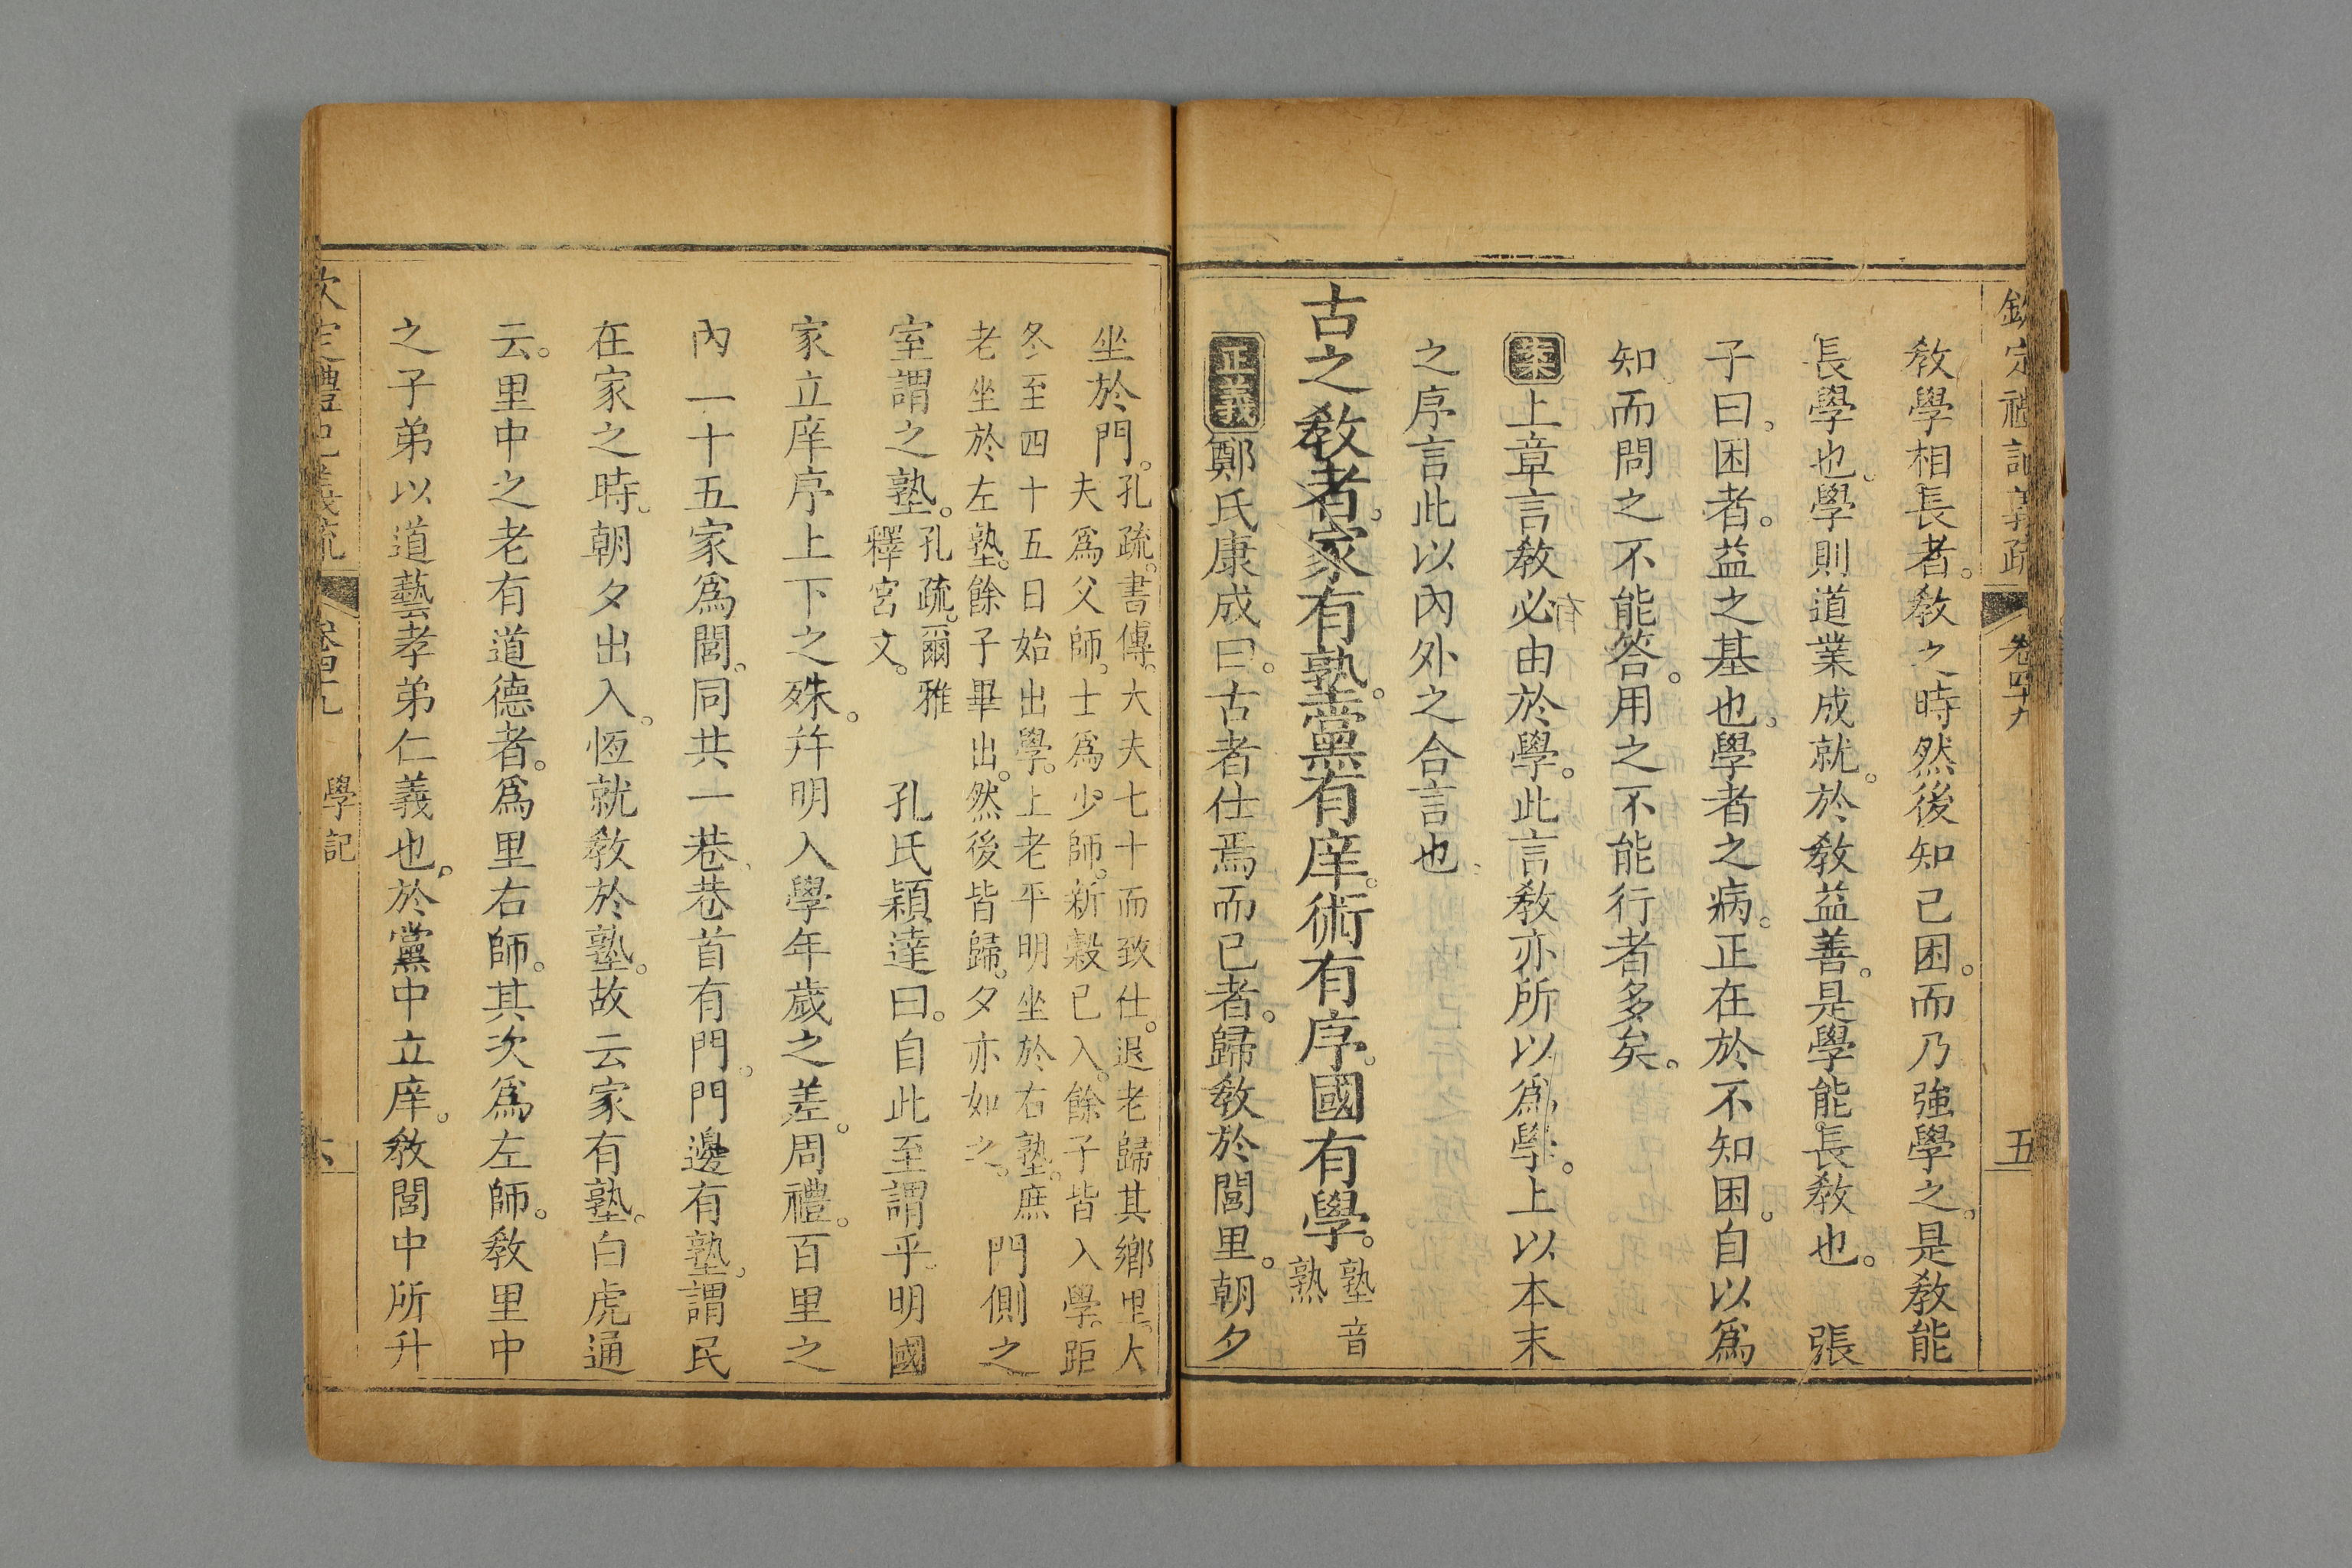 欽定禮記義疏 卷四十九 五
敎學相長者。敎之時然後知己困。而乃強學之。是敎能
長學也。學則道業成就。於敎益善。是學能長敎也。 張
子曰。困者。益之基也。學者之病。正在於不知困。自以爲
知而問之不能答。用之不能行者多矣。
案上章言敎必由於學。此言敎亦所以爲學。上以本末
之序言此以內外之合言也
古之敎者。家有塾。黨有庠。術有序。國有學。塾音
熟
正義鄭氏康成曰。古者仕焉而已者。歸敎於閭里。朝夕
坐於門。孔疏。書傳。大夫七十而致仕。退老歸其鄉里。大
夫爲父師。士爲少師。新穀已入。餘子皆入學。距
冬至四十五日始出學。上老平明坐於右塾。庶
老坐於左塾。餘子畢出。然後皆歸。夕亦如之。 門側之
室謂之塾。孔疏。爾雅
釋宮文。 孔氏穎達曰。自此至謂乎。明國
家立庠序上下之殊。幷明入學年歲之差。周禮。百里之
內一十五家爲閭。同共一巷、巷首有門。門邊有塾。謂民
在家之時。朝夕出入。恆就敎於塾。故云家有塾。白虎通
云。里中之老有道德者。爲里右師。其次爲左師。敎里中
之子弟以道藝孝弟仁義也。於黨中立庠。敎閭中所升
欽定禮記義疏 卷四十九 學記 六